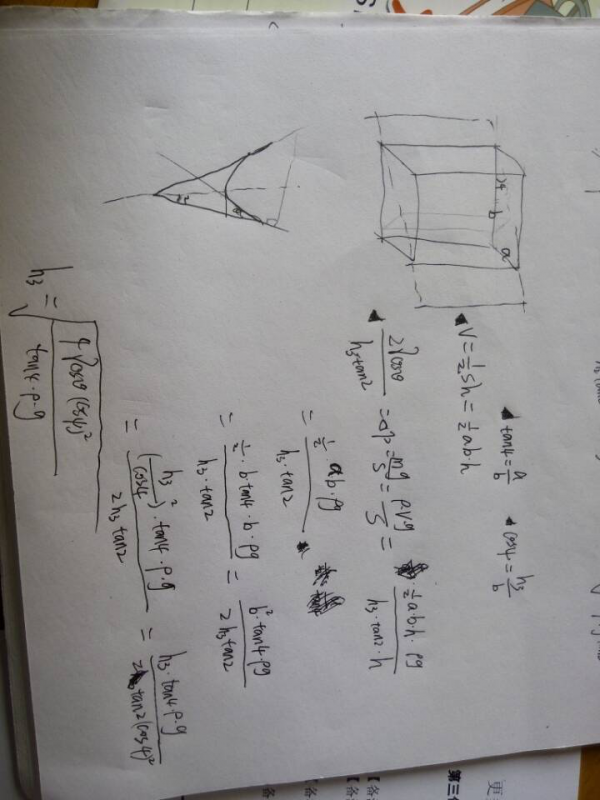 tan4 = a/b cos4 = h₃/b
V = ½Sh = ½ab·h
2γcosθ / h₃tan2 = ΔP = mg/S = ρVg/S = ½a·b·h·ρg / h₃·tan2·h
= ½·ab·ρg / h₃·tan2
= ½·b·tan4·b·ρg / h₃·tan2 = b²·tan4·ρg / 2h₃tan2
= (h₃/cos4)²·tan4·ρ·g / 2h₃tan2 = h₃·tan4·ρ·g / 2tan2(cos4)²
h₃ = √(4γcosθ(cos4)² / tan4·ρ·g)
4
b
a
第三